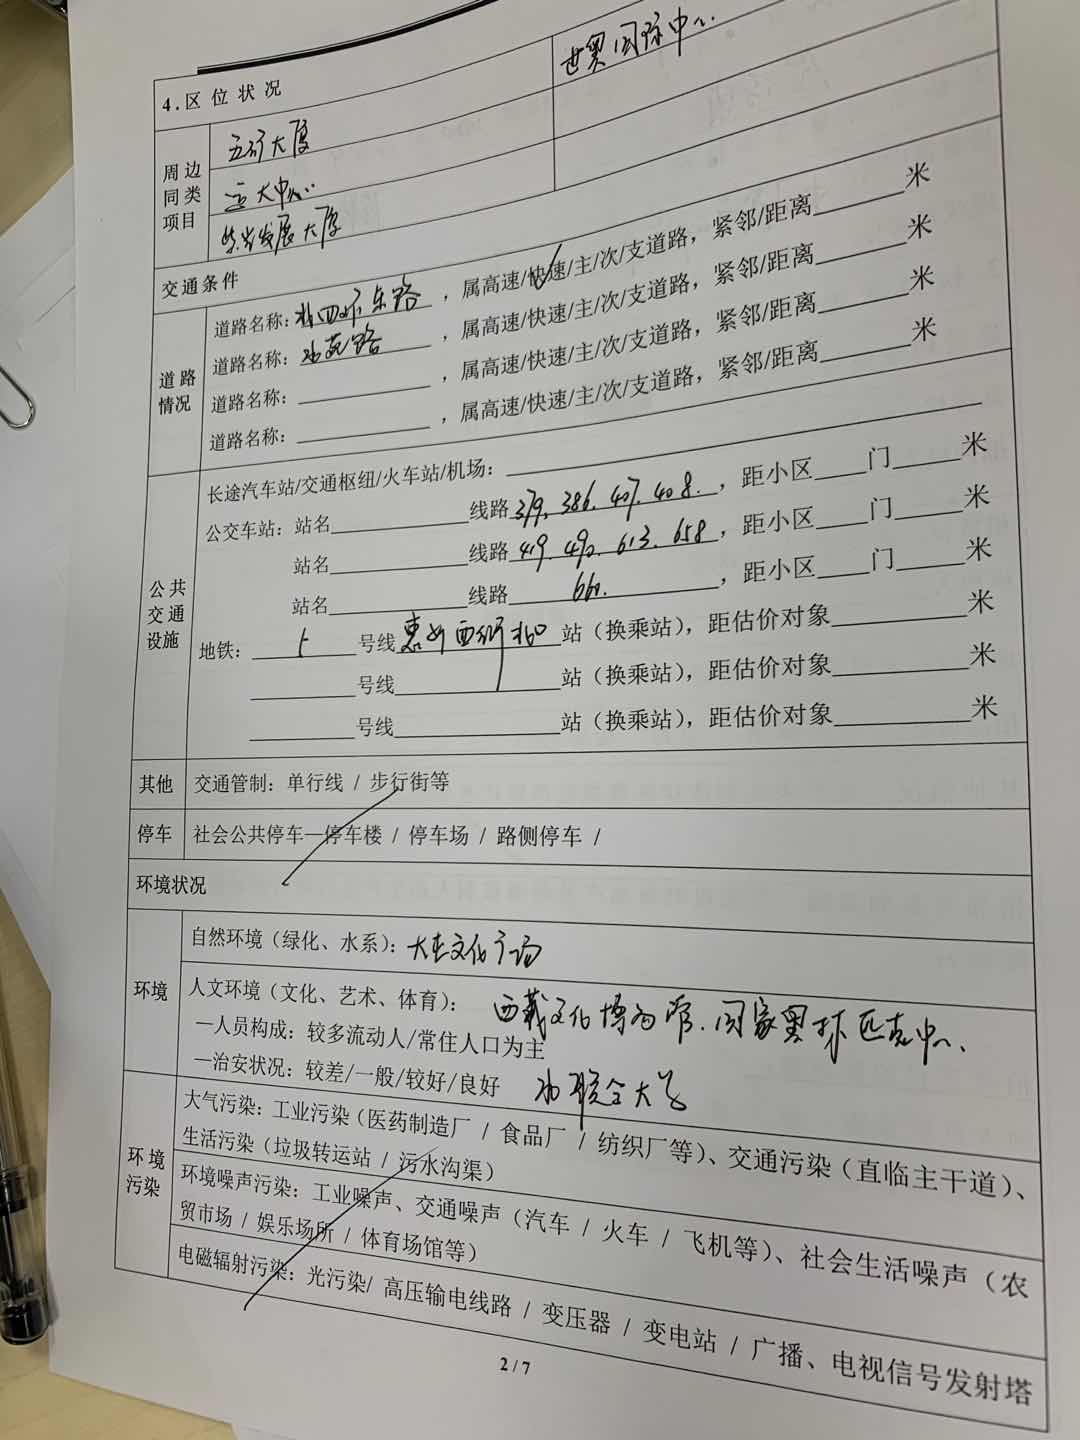 4.区 位 状 况
世奥国际中心
周 边
同 类
项目
五矿大厦
远大中心
发展大厦
交通条件
道 路
情况
道路名称：北四环东路，属高速/快速/主/次/支道路，紧邻/距离______米
道路名称：北苑路，属高速/快速/主/次/支道路，紧邻/距离______米
道路名称：______，属高速/快速/主/次/支道路，紧邻/距离______米
道路名称：______，属高速/快速/主/次/支道路，紧邻/距离______米
公 共
交 通
设施
长途汽车站/交通枢纽/火车站/机场：______
公交车站：站名______线路379、386、407、408、，距小区____门____米
站名______线路419、490、613、658，距小区____门____米
站名______线路660、，距小区____门____米
地铁：5号线惠新西街北口站（换乘站），距估价对象______米
______号线______站（换乘站），距估价对象______米
______号线______站（换乘站），距估价对象______米
其他
交通管制：单行线 / 步行街等
停车
社会公共停车—停车楼 / 停车场 / 路侧停车 /
环境状况
环境
自然环境（绿化、水系）：文化广场
人文环境（文化、艺术、体育）： 西藏文化博物馆、国家奥林匹克中心、
—人员构成：较多流动人/常住人口为主
—治安状况：较差/一般/较好/良好 北联合大学
环 境
污染
大气污染：工业污染（医药制造厂 / 食品厂 / 纺织厂等）、交通污染（直临主干道）、
生活污染（垃圾转运站 / 污水沟渠）
环境噪声污染：工业噪声、交通噪声（汽车 / 火车 / 飞机等）、社会生活噪声（农
贸市场 / 娱乐场所 / 体育场馆等）
电磁辐射污染：光污染/ 高压输电线路 / 变压器 / 变电站 / 广播、电视信号发射塔
2 / 7